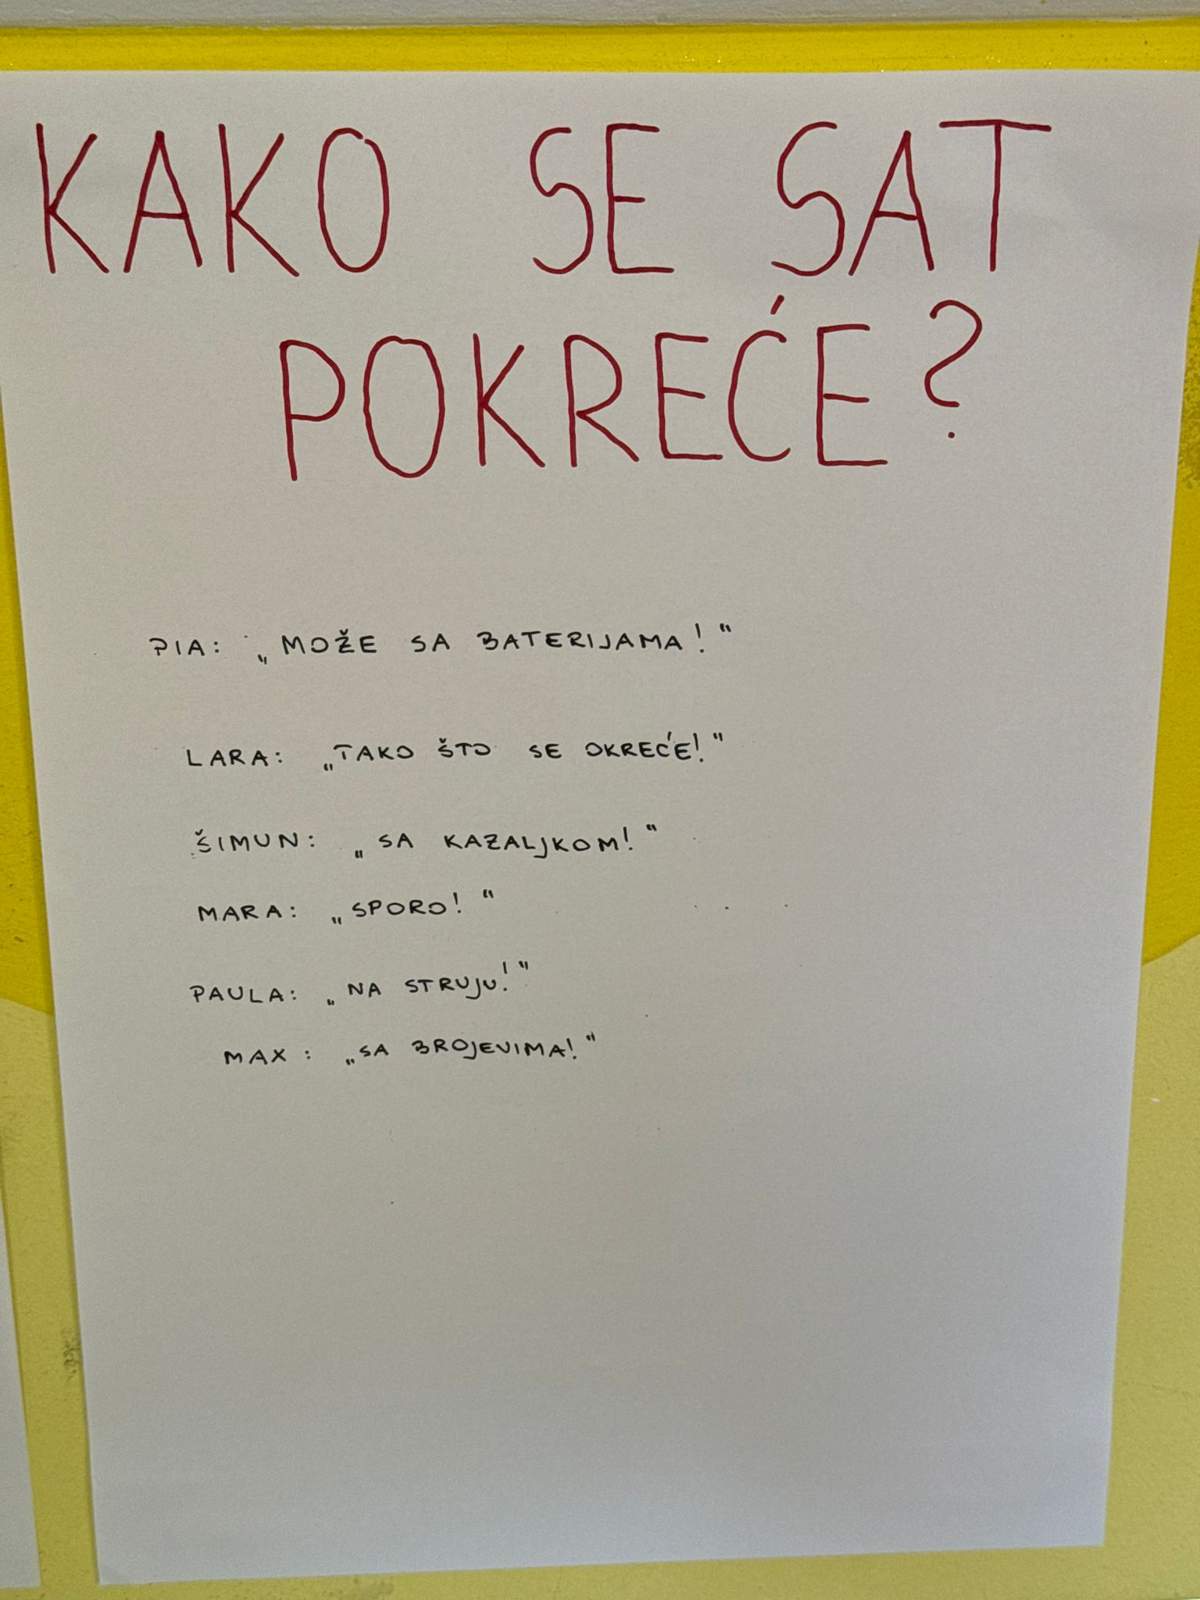 KAKO SE SAT
POKREĆE?
PIA: „MOŽE SA BATERIJAMA!“
LARA: „TAKO ŠTO SE OKREĆE!“
ŠIMUN: „SA KAZALJKOM!“
MARA: „SPORO!“
PAULA: „NA STRUJU!“
MAX: „SA BROJEVIMA!“